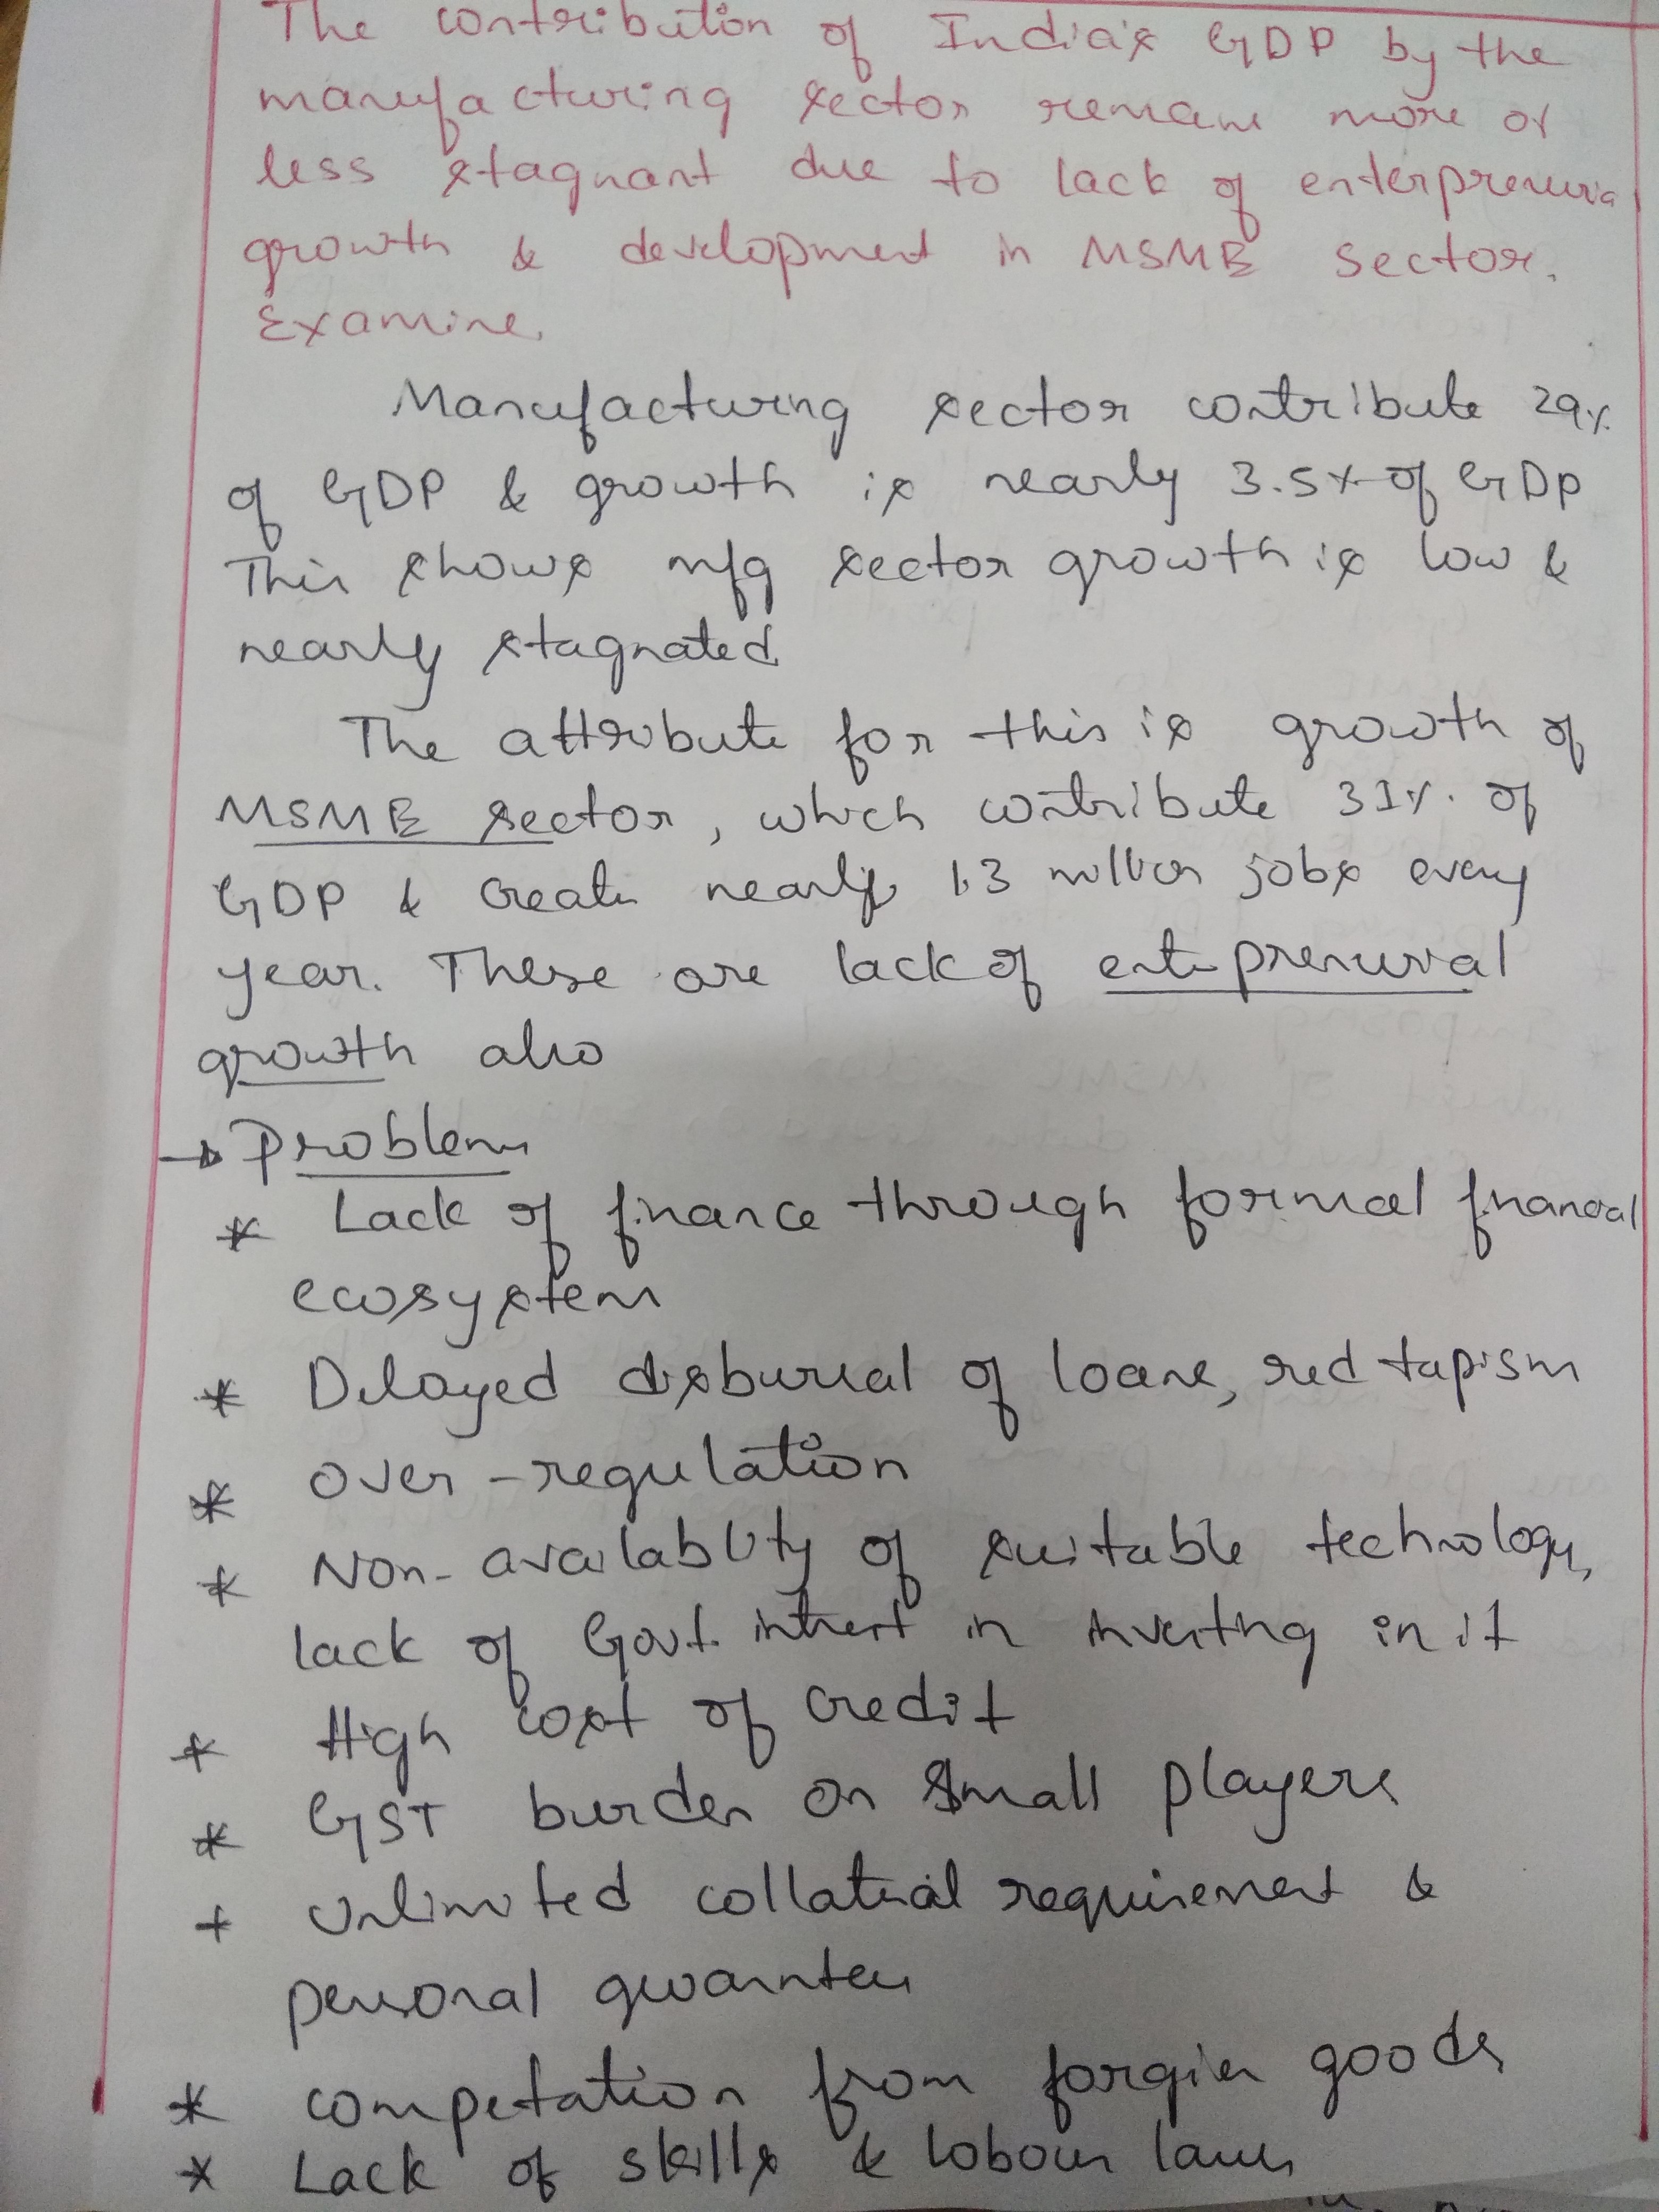 The contribution of India's GDP by the
manufacturing sector remains more or
less stagnant due to lack of enterprenuria
growth & development in MSME sector.
Examine.
Manufacturing sector contribute 29%
of GDP & growth is nearly 3.5% of GDP
This shows mfg sector growth is low &
nearly stagnated
The attribute for this is growth of
MSME sector, which contribute 31% of
GDP & create nearly 1.3 million jobs every
year. These are lack of enteprenurval
growth also
→ Problems
* Lack of finance through formal financial
ecosystem
* Delayed disbursal of loans, red tapism
* Over-regulation
* Non-availablity of suitable technology,
lack of Govt. intrest in investing in it
* High cost of credit
* GST burden on small players
+ Unlimited collateral requirement &
personal guarantees
* Competation from forgien goods
* Lack of skills & labour laws